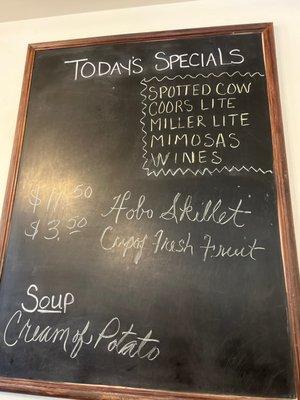 TODAY'S SPECIALS
SPOTTED COW
COORS LITE
MILLER LITE
MIMOSAS
WINES
$11.50 Hobo Skillet
$3.50 Cup of Fresh Fruit
SOUP
Cream of Potato